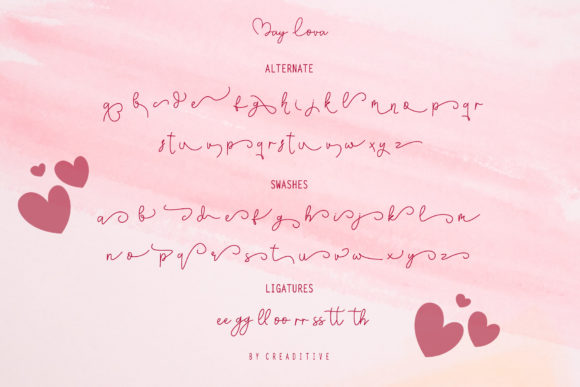 Bay lova
ALTERNATE
a b c d e f g h i j k l m n o p q r
s t u v p q r s t u v w x y z
SWASHES
a b c d e f g h i j k l m
n o p q r s t u v w x y z
LIGATURES
ee gg ll oo rr ss tt th
BY CREADITIVE